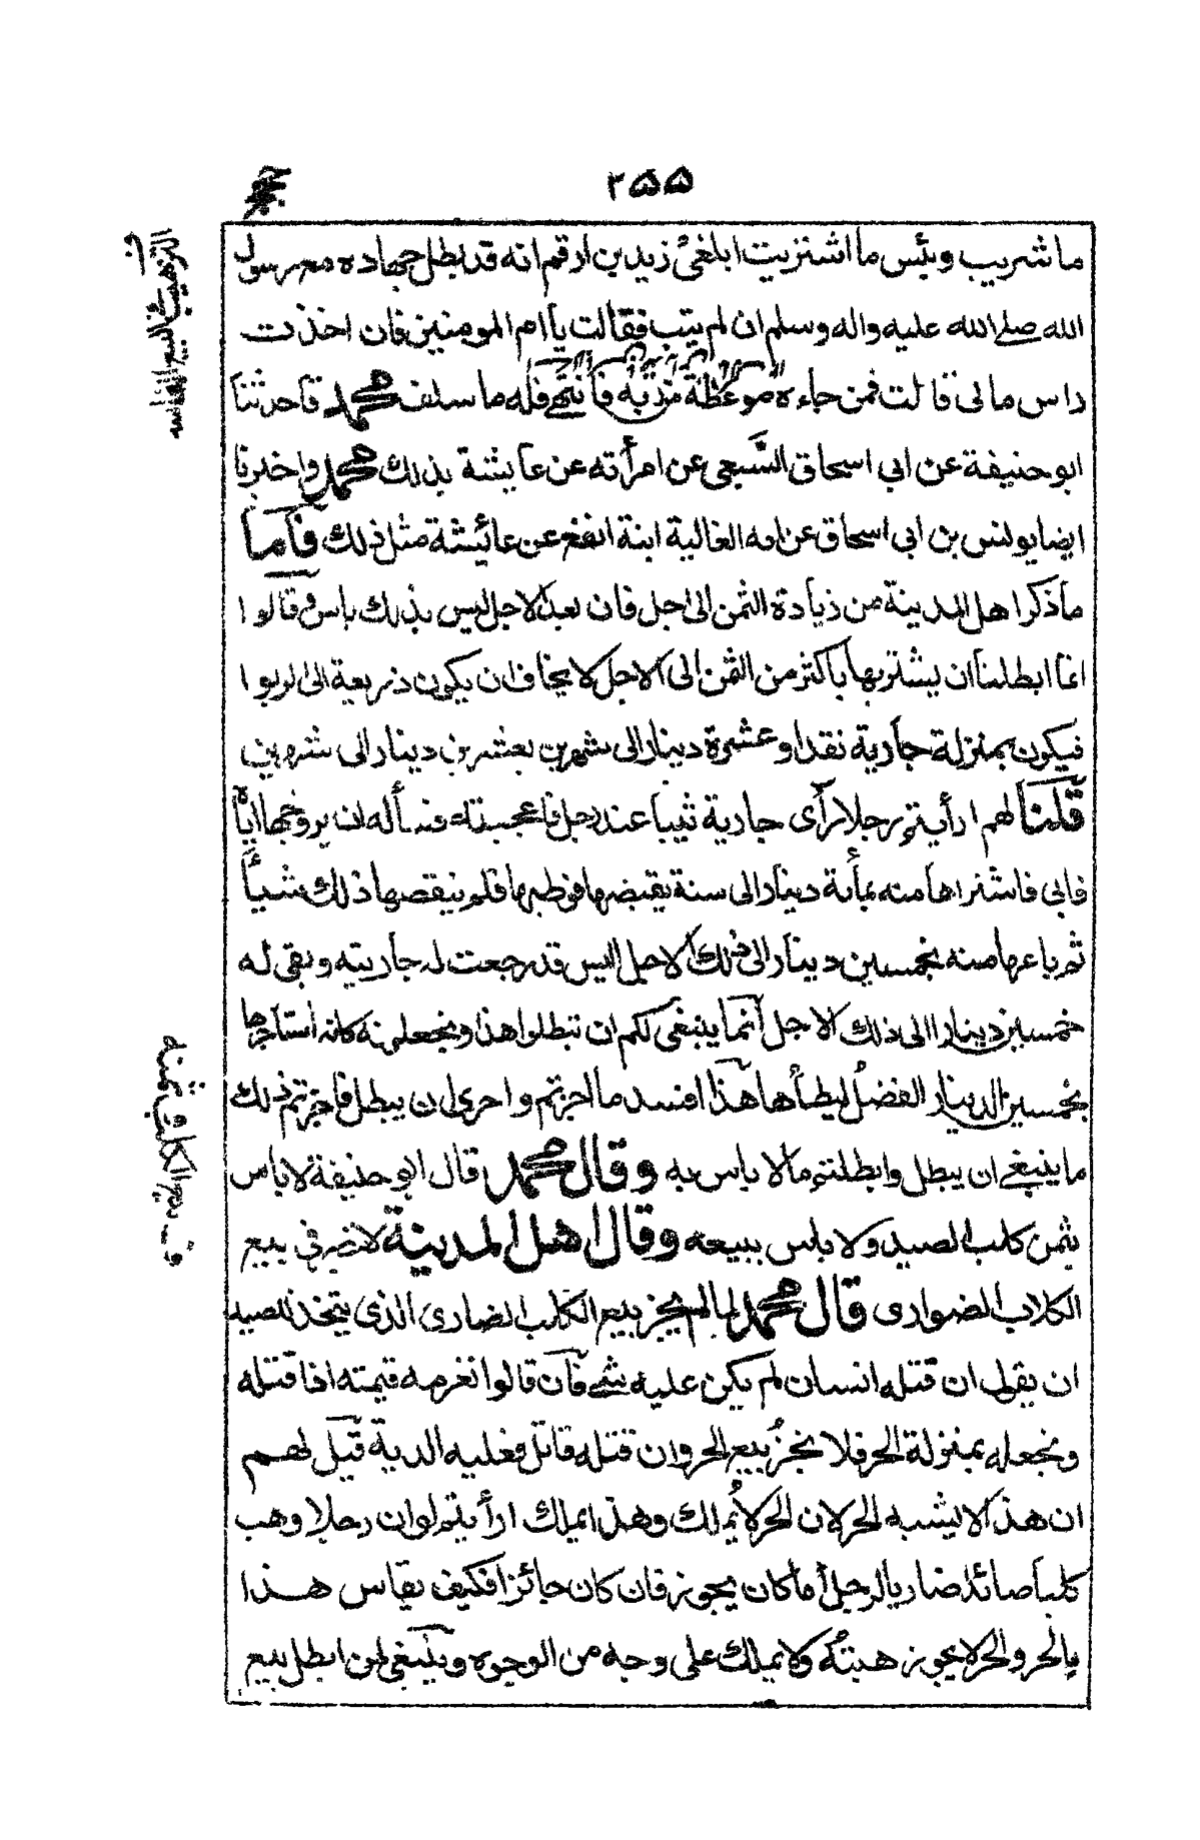 ۲۵۵
ما شريب وبئس ما اشتريت ابلغى زيد بن ارقم انه قد بطل جهاده مع رسول
الله صلے الله عليه واله وسلم ان لم يتب فقالت يا ام المومنين فان اخذت
راس مالى قالت فمن جاءه موعظة من ربه فانتهى فله ما سلف محمد قاحدثنا
ابو حنيفة عن ابي اسحاق السبيعى عن امرأته عن عايشة بذلك محمد واخبرنا
ايضا يونس بن ابي اسحاق عن امه العالية ابنة انفع عن عائيشة مثل ذلك فاما
ما ذكر اهل المدينة من زيادة الثمن الى اجل فان بعد الاجل ليس بذلك باس وقالوا
انما ابطلنا ان يشتريها باكثر من الثمن الى الاجل لا يخاف ان يكون ذريعة الى الربوا
فيكون بمنزلة جارية نقدا وعشرة دينار الى شهرين بعشرين دينار الى شهرين
قلنا لهم ارأيتم رجلا رأى جارية ثيبا عند رجل فاعجبته فسأله ان يزوجها اياه
فابى فاشتراها منه بمأية دينار الى سنة يقبضها فوطيها فلم ينقصها ذلك شيأ
ثم باعها منه بخمسين دينار الى ذلك الاجل اليس قد رجعت له جاريته وبقى له
خمسين دينارا الى ذلك الاجل انما ينبغى لكم ان تبطلوا هذا ونجعله منه كانه استاجرها
بخمسين الدينار الفضل ليطأها هذا افسد ما اجزتم واحرى ان يبطل فاجزتم ذلك
ما ينبغے ان يبطل وابطلتم ما لا باس به وقال محمد قال ابو حنيفة لا باس
بثمن كلب الصيد ولا باس ببيعه وقال اهل المدينة لا خير في بيع
الكلاب الضوارى قال محمد لما لم يجز بيع الكلب الضارى الذى يتخذ للصيد
ان يقول ان قتله انسان لم يكن عليه شے فان قالوا نغرمه قيمته اذا قتله
ونجعله بمنزلة الحر فلا نجز بيع الحر وان قتله قاتل فعليه الدية قيل لهم
ان هذا لا يشبه الحر لان الحر لا يملك وهذا يملك ارأيتم لو ان رجلا وهب
كلبا صائدا ضاريا لرجل أما كان يجوز فان كان جائزا فكيف يقاس هذا
بالحر والحر لا يجوز هبته ولا يملك على وجه من الوجوه وينبغى لمن ابطل بيع
ف بيع الكلب وثمنه